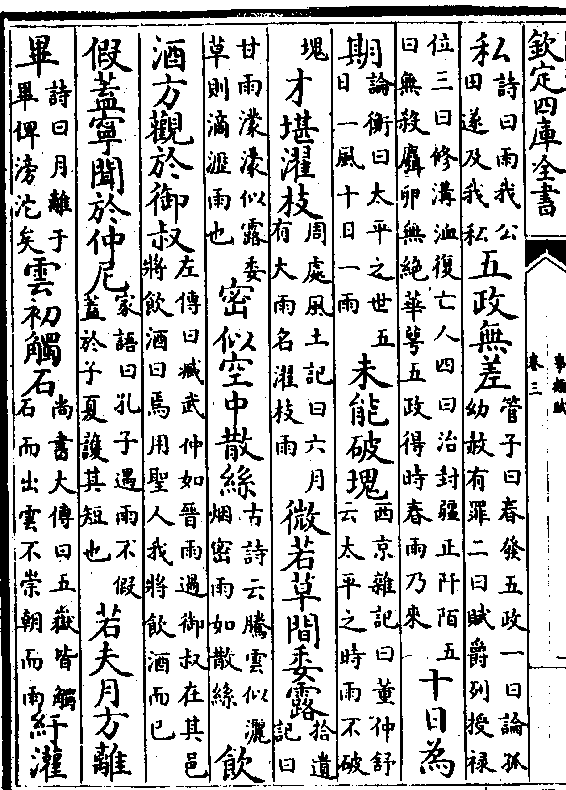 欽定四庫全書
事類賦
卷三
私詩曰雨我公田遂及我私五政無差管子曰春發五政一曰論孤幼赦有罪二曰賦爵列授禄
位三曰修溝洫復亡人四曰治封疆正阡陌五曰無殺麛卵無絶華萼五政得時春雨乃來十日為
期論衡曰太平之世五日一風十日一雨未能破塊西京雜記曰董仲舒云太平之時雨不破
塊才堪濯枝周處風土記曰六月有大雨名濯枝雨微若草間委露拾遺記曰
甘雨濛濛似露委草則滴瀝雨也密似空中散絲古詩云騰雲似灑烟密雨如散絲飲
酒方觀於御叔左傳曰臧武仲如晉雨過御叔在其邑將飲酒曰焉用聖人我將飲酒而已
假蓋寧聞於仲尼家語曰孔子遇雨不假蓋於子夏護其短也若夫月方離
畢詩曰月離于畢俾滂沱矣雲初觸石尚書大傳曰五嶽皆觸石而出雲不崇朝而雨紆灌